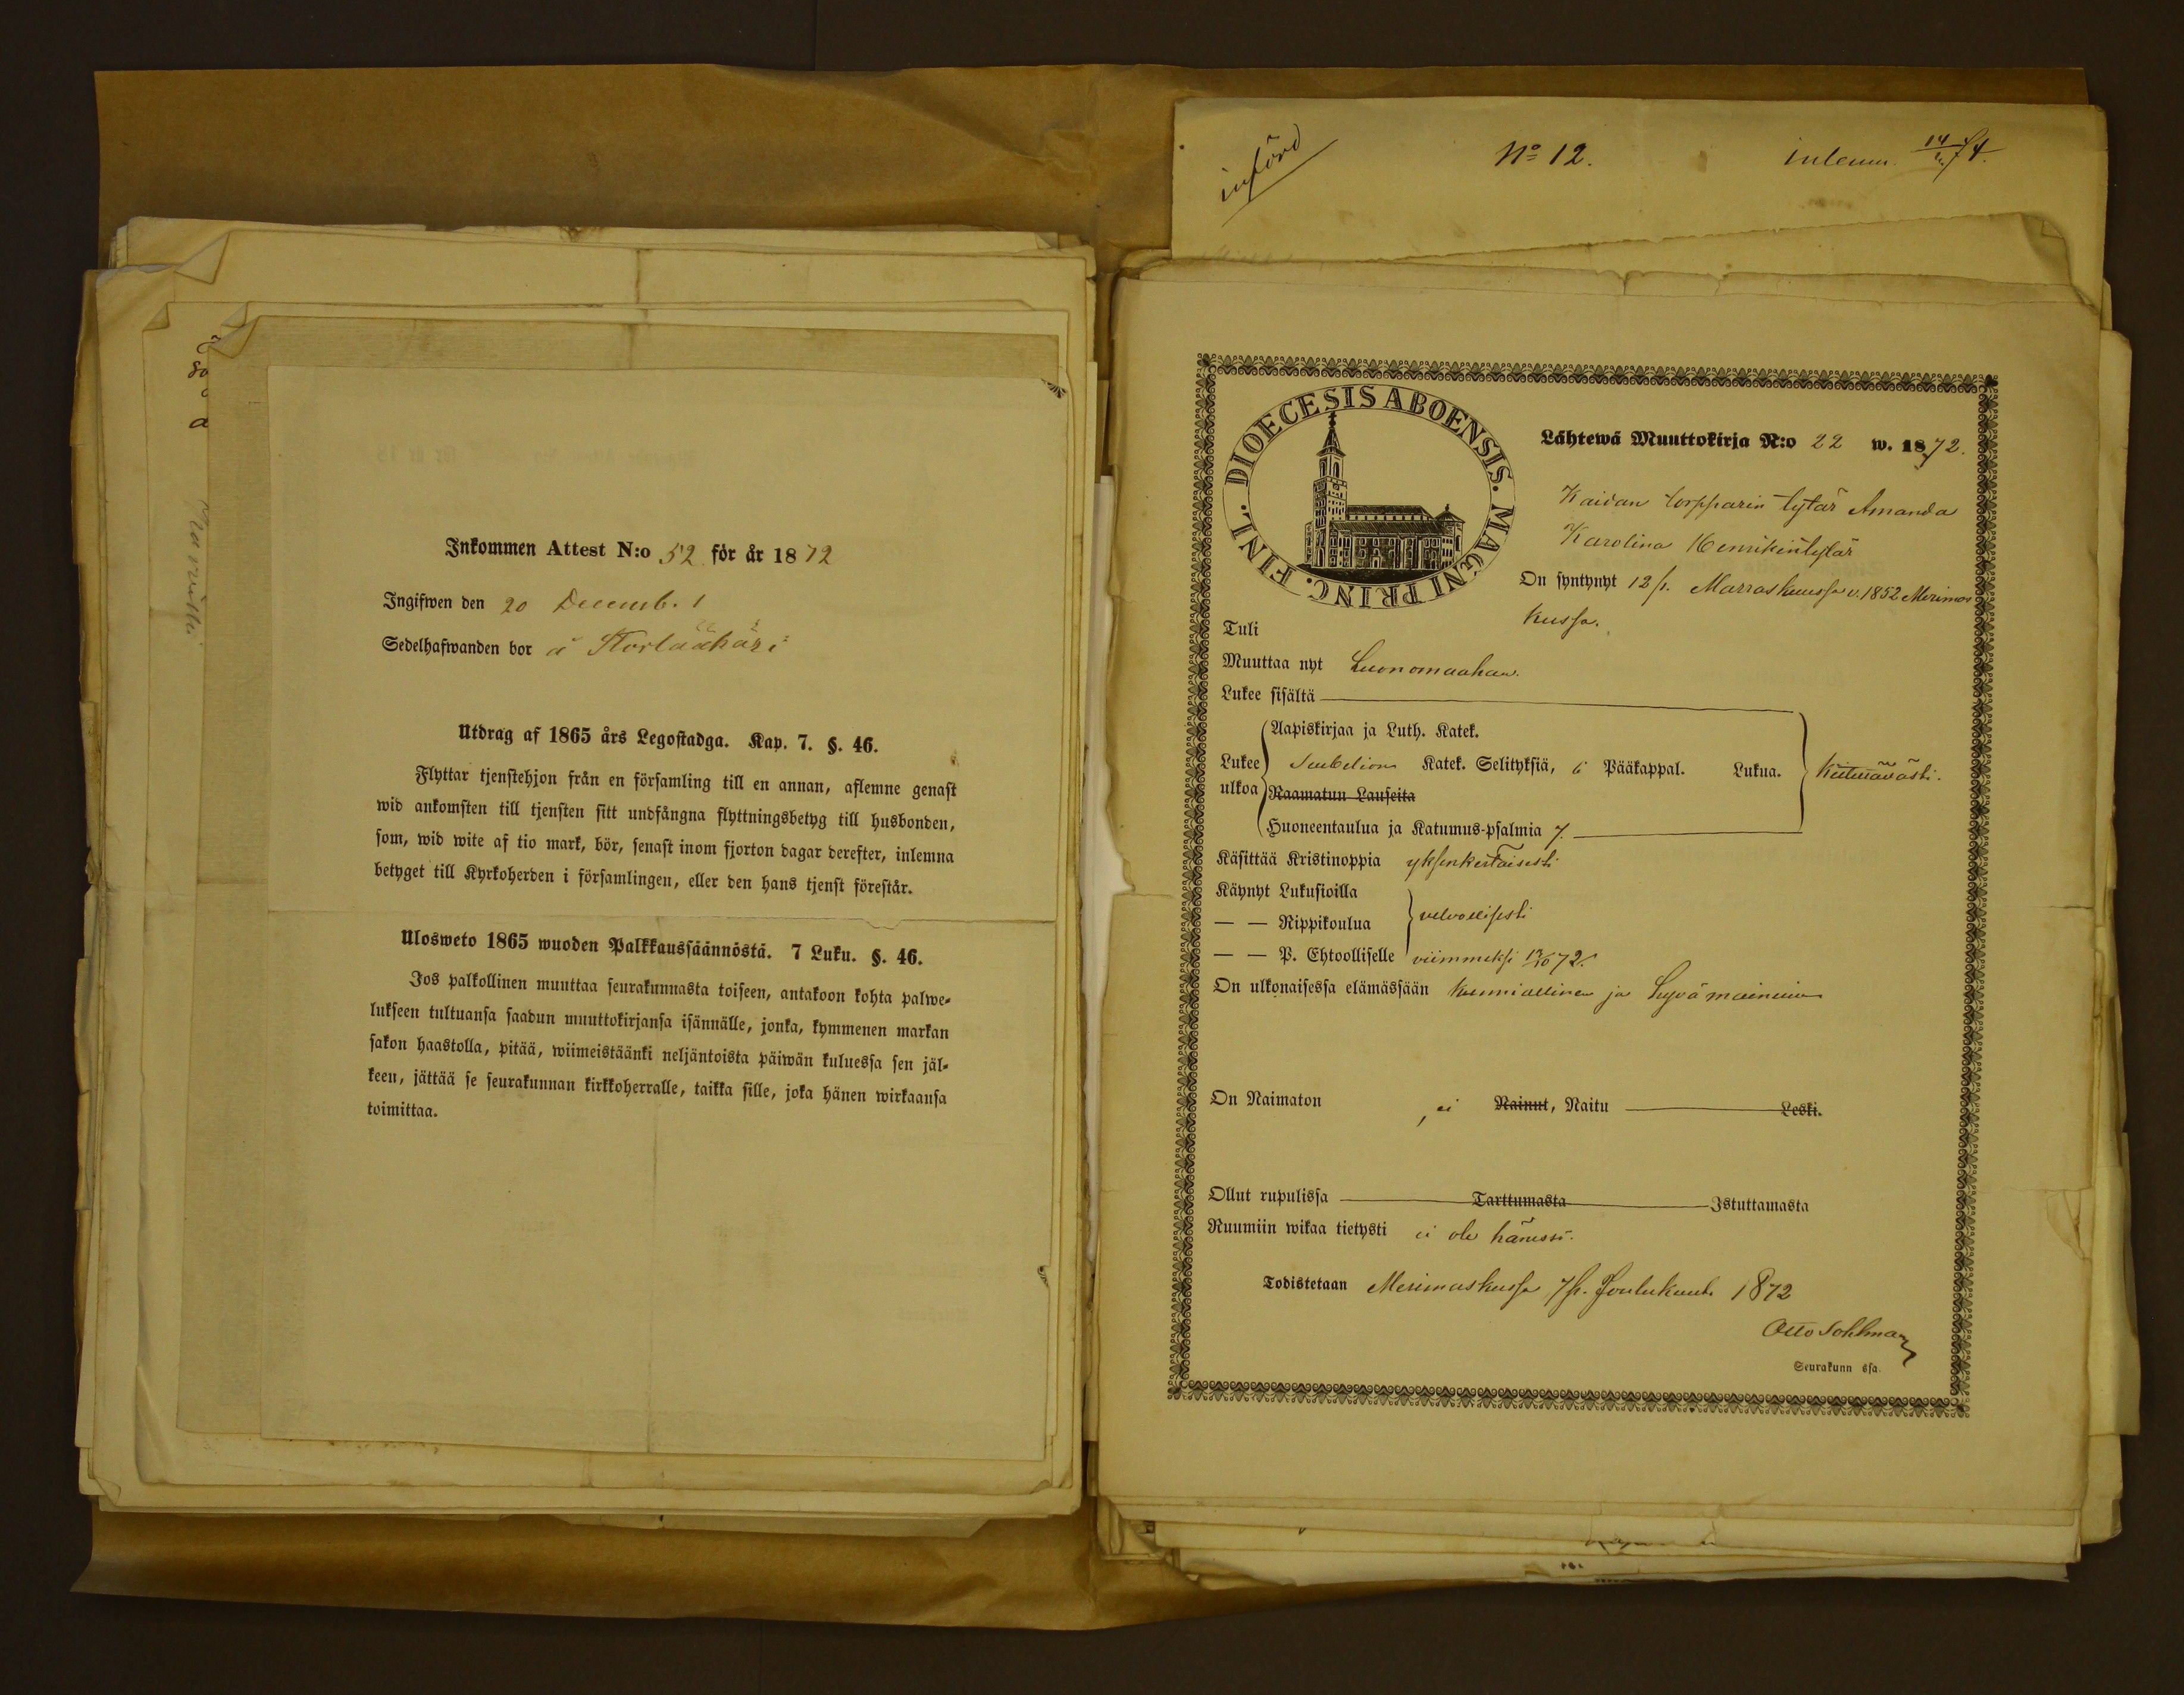 Inkommen Attest N:o 52 för år 1872
Ingifwen den 20 Decemb. 1
Sedelhafwanden bor å
Utdrag af 1865 års Legostadga. Kap. 7. §. 46.
Flyttar tjenstehjon från en församling till en annan, aflemne genast
wid ankomsten till tjensten sitt undfångna flyttningsbetyg till husbonden,
som, wid wite af tio mark, bör, senast inom fjorton dagar derefter, inlemna
betyget till Kyrkoherden i församlingen, eller den hans tjenst förestår.
Ulosweto 1865 wuoden Palkkaussäännöstä. 7 Luku. §. 46.
Jos palkollinen muuttaa seurakunnasta toiseen, antakoon kohta palwe-
lukseen tultuansa saadun muuttokirjansa isännälle, jonka, kymmenen markan
sakon haastolla, pitää, wiimeistäänki neljäntoista päiwän kuluessa sen jäl-
keen, jättää se seurakunnan kirkkoherralle, taikka sille, joka hänen wirkaansa
toimittaa.
införd
No 12.
DIOECESIS ABOENSIS. MAGNI PRINC. FINL.
Lähtewä Muuttokirja N:o 22 w. 1872.
Kaidan torpparin tytär Amanda
Karolina Henrikintytär
On syntynyt 12 p. Marraskuussa v. 1852 Merimas
kussa.
Tuli
Muuttaa nyt Luonomaahan.
Lukee sisältä
Aapiskirjaa ja Luth. Katek.
Lukee ulkoa Katek. Selityksiä, 6 Pääkappal. Lukua. Kiitettävästi.
Raamatun Lauseita
Huoneentaulua ja Katumus-psalmia 7.
Käsittää Kristinoppia yksinkertaisesti
Käynyt Lukusioilla
— — Rippikoulua velvollisesti
— — P. Ehtoolliselle viimmeksi 13/10 72.
On ulkonaisessa elämässään kunniallinen ja hyvämaineinen
On Naimaton , ei Nainut, Naitu Leski.
Ollut rupulissa Tarttumasta Istuttamasta
Ruumiin wikaa tietysti ei ole hänessä.
Todistetaan Merimaskussa 7 p. Joulukuuta 1872
Otto Sohlman
Seurakunn ssa.